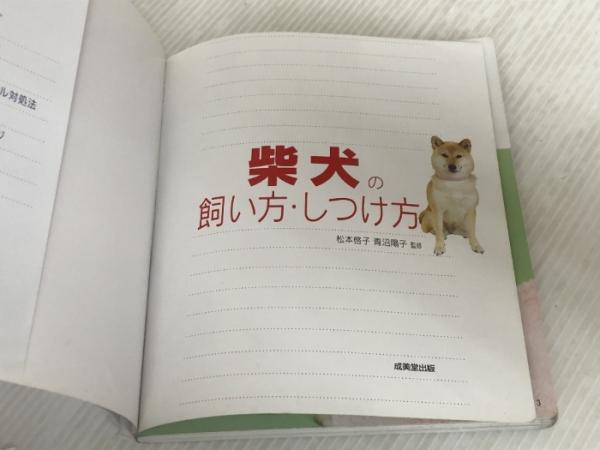 ル対処法
柴犬の
飼い方・しつけ方
松本啓子 青沼陽子 監修
成美堂出版
3